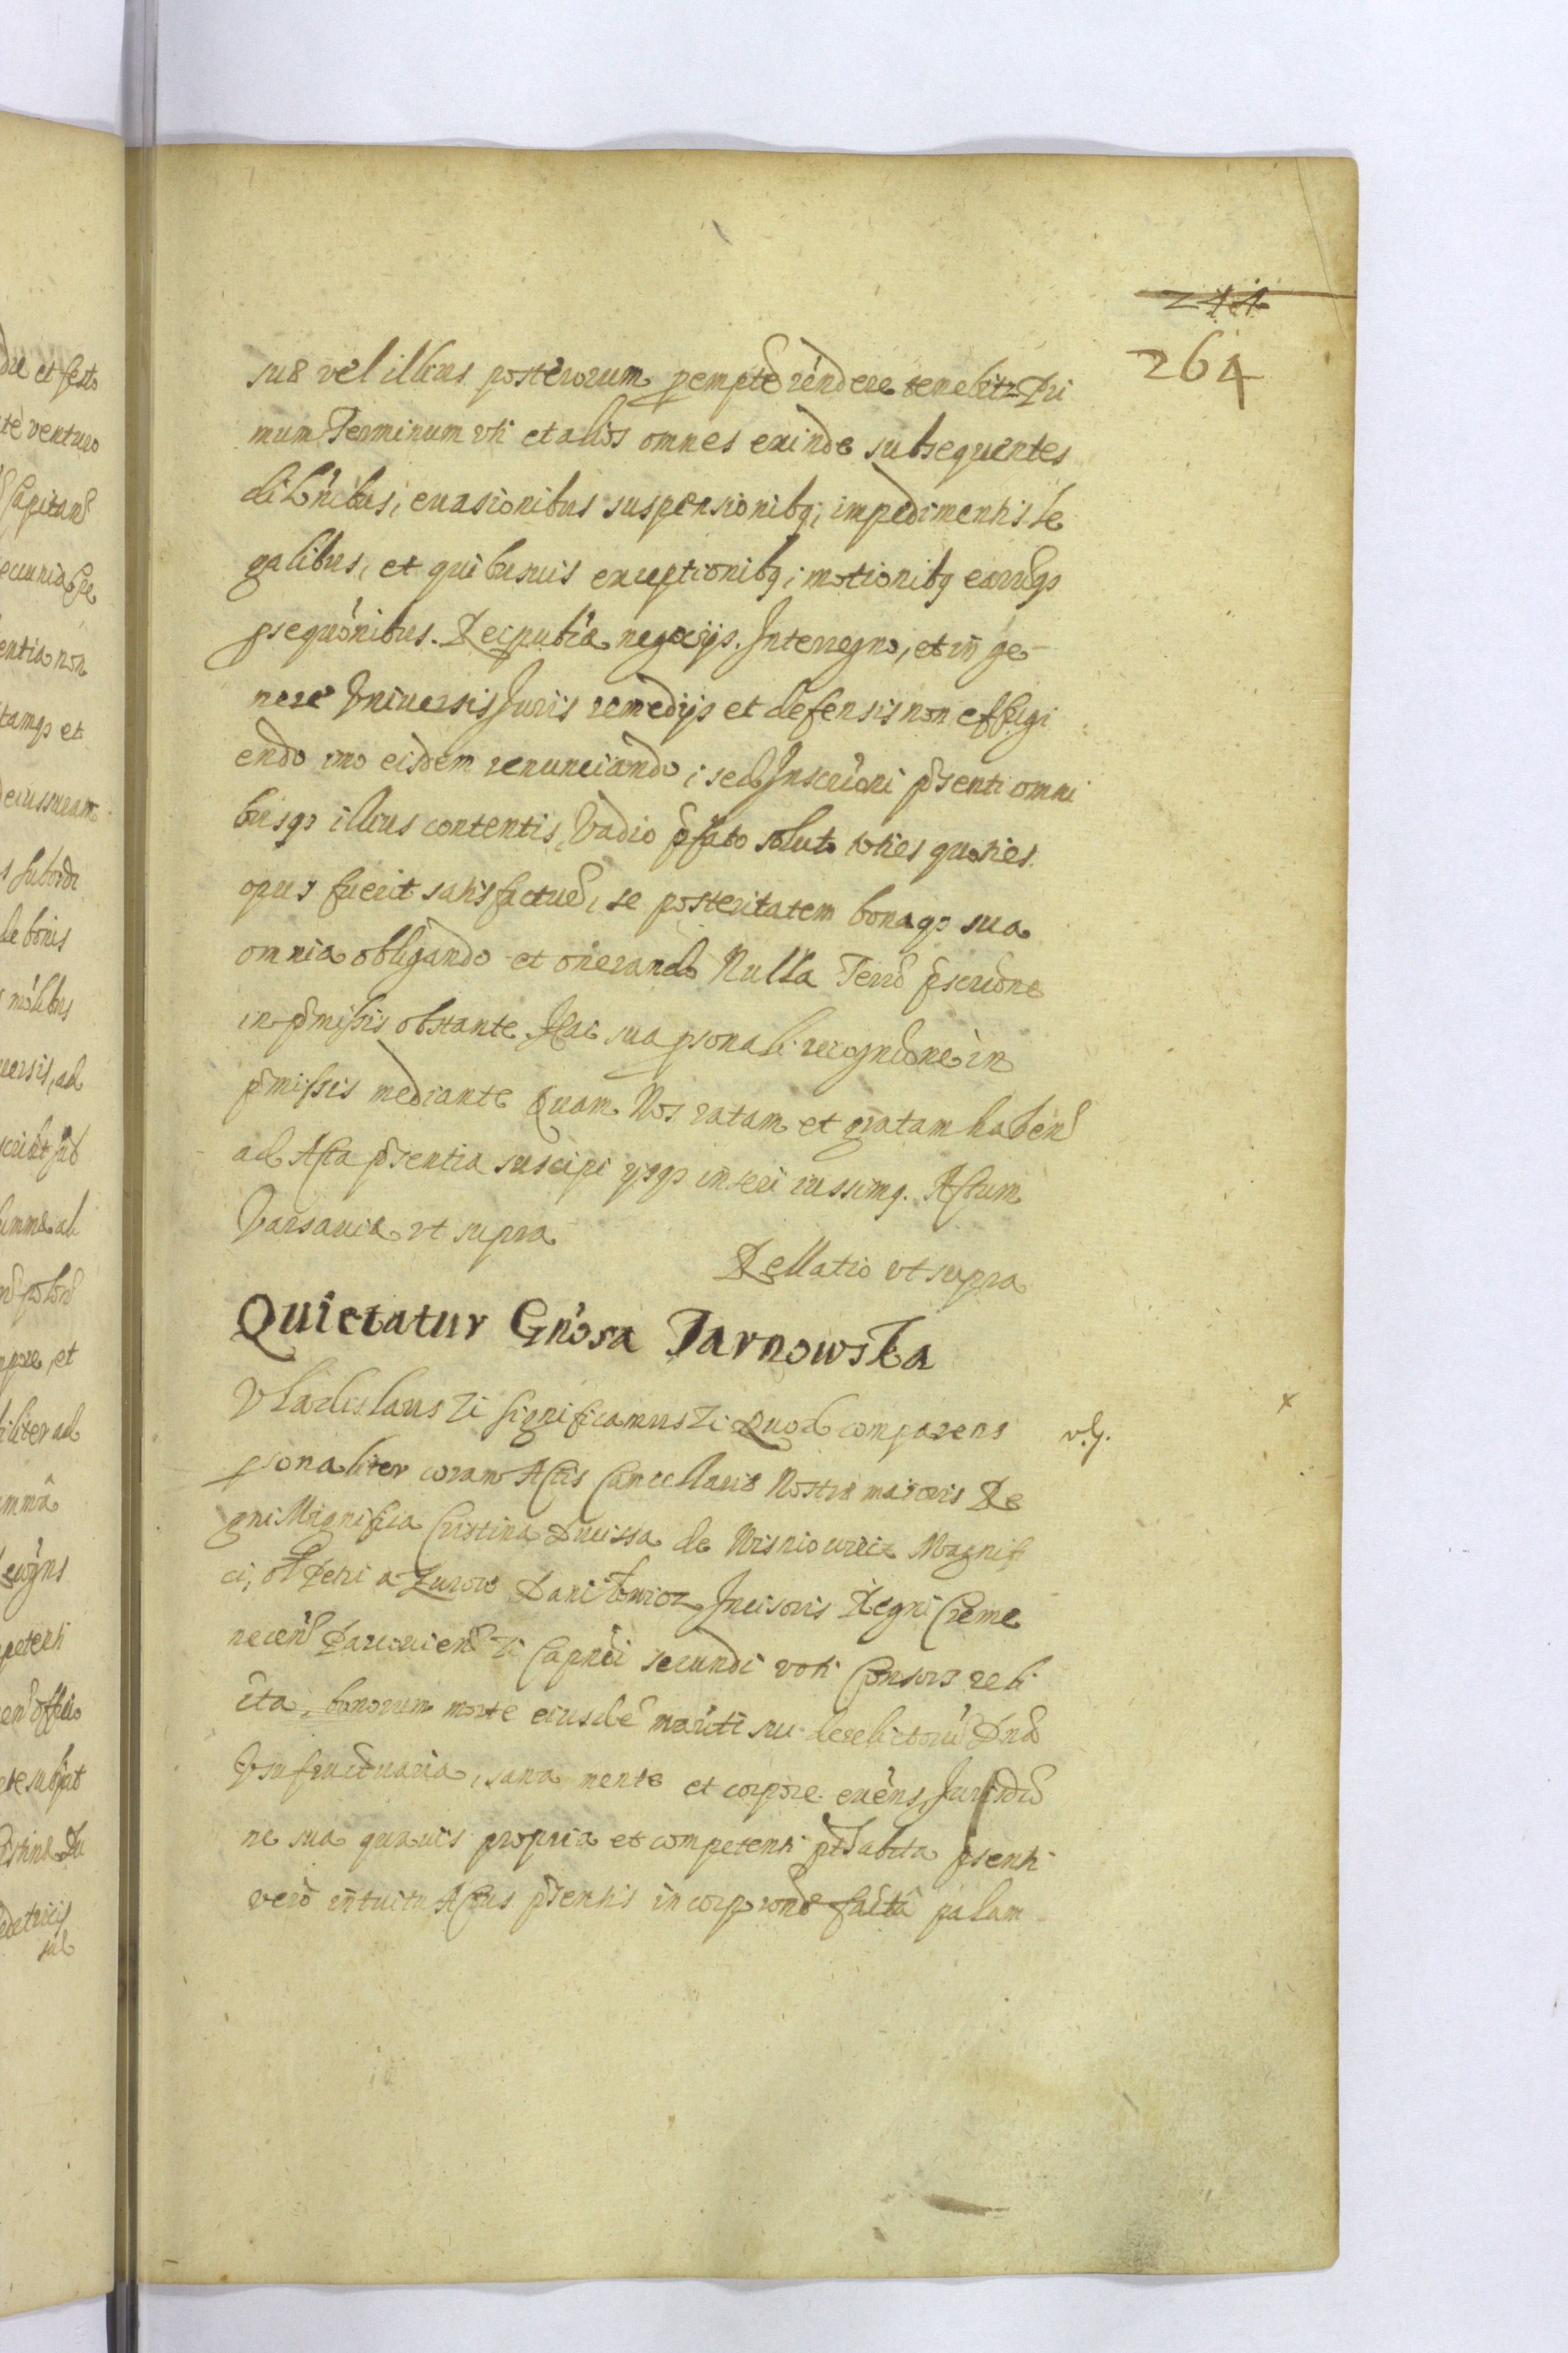 244
264
suæ vel illius posterorum, pempte rndere tenebitr Pri
mum Terminum vti et alios omnes exinde subsequentes
dilonibus, euasionibus suspensionibq; impedimentis le
galibus, et quibusuis exceptionibq; motionibq earumqz
psequonibus. Reipublica negocijs. Interregno, et in ge
nere Vniuersis Juris remedijs et defensis non effugi
endo imo eisdem renunciando; sed Inscrioni psenti omni
busqz illius contentis, Vadio pfato soluto toties quoties
opus fuerit satisfactur, se posteritatem bonaqz sua
omnia obligando et onerando Nulla Terr pscrione
in pmissis obstante. Hac sua psonali recognicone in
pmissis mediante Quam Nos ratam et gratam haben
ad Acta psentia suscipi ysqz inseri iussimq. Actum
Varsauiæ vt supra
Rellatio vt supra
Quietatur Gnosa Tarnowska
Vladislaus Zc significamus Zc Quod comparens
psonaliter coram Actis Cancellariæ Nostræ maioris Re
gni Magnifica Cristina Ducissa de Wisniouiecz Magnifi
ci, ol Petri a Zurow Daniłowicz Incisoris Regni Creme
necen Parcouien Zc Capnei secundi voti Consors reli
cta, bonorum morte eiusde mariti sui derelictoru Dna
Vsufructuaria, sana mente et corpore exens, Jurisdio
ne sua quauis propria et competenti pt habita psenti
vero intuitu Actus psentis incorporone facta palam
v.g.